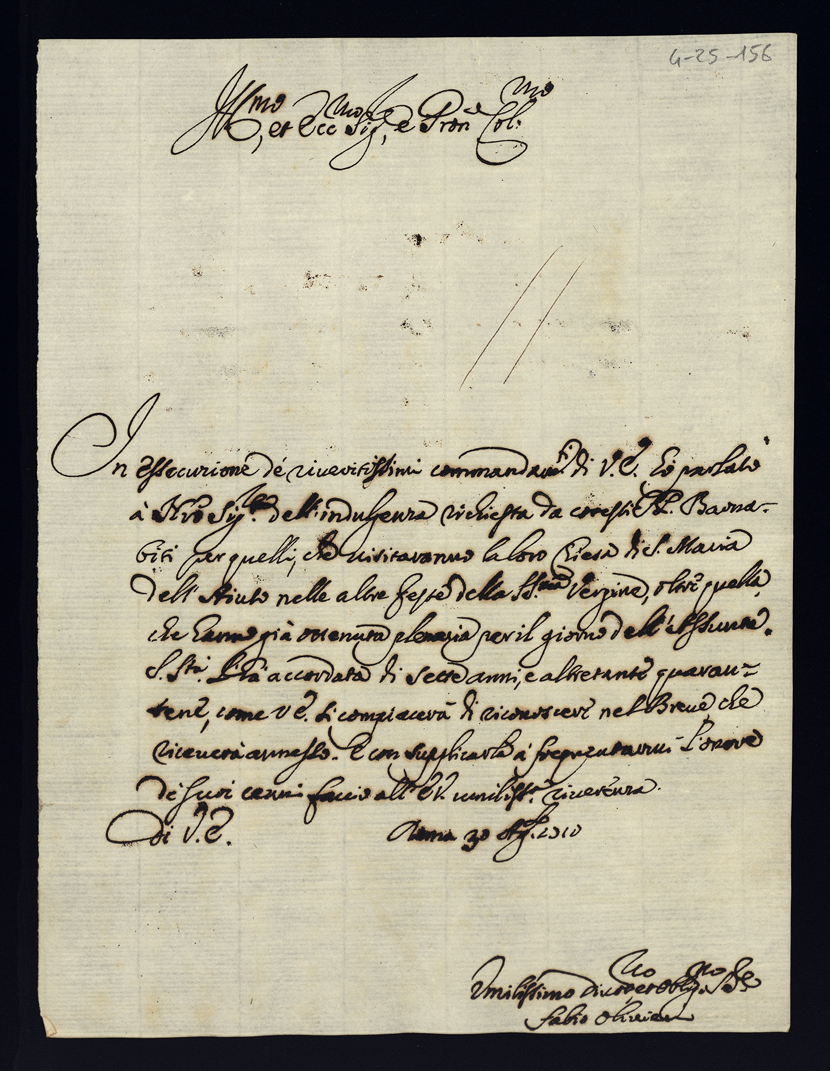 4-25-156
Ill.mo, et Ecc.mo Sig.re, e Pron Col.mo
In essecuzione de riveritissimi commandam.ti di V.E. hò parlato
à Nrò Sig.re dell'indulgenza richiesta da cotesti PP. Barna-
biti per quelli, che visitaranno la loro Chiesa di S. Maria
dell'Aiuto nelle altre feste della SS.ma Vergine, oltre quella,
che hanno già ottenuta plenaria per il giorno dell'Assunta.
S. Stà l'hà accordata di sette anni, e altretante quaran-
tene, come V.E. si compiacerà di riconoscere nel Breve che
riceverà annesso. E con supplicarla à frequentarmi l'onore
de suoi cenni faccio all'E.V. umiliss.a riverenza.
Di V.E. Roma 30 Ag.
Umilissimo Divot.mo et Oblig.mo Se
Fabio Olivieri